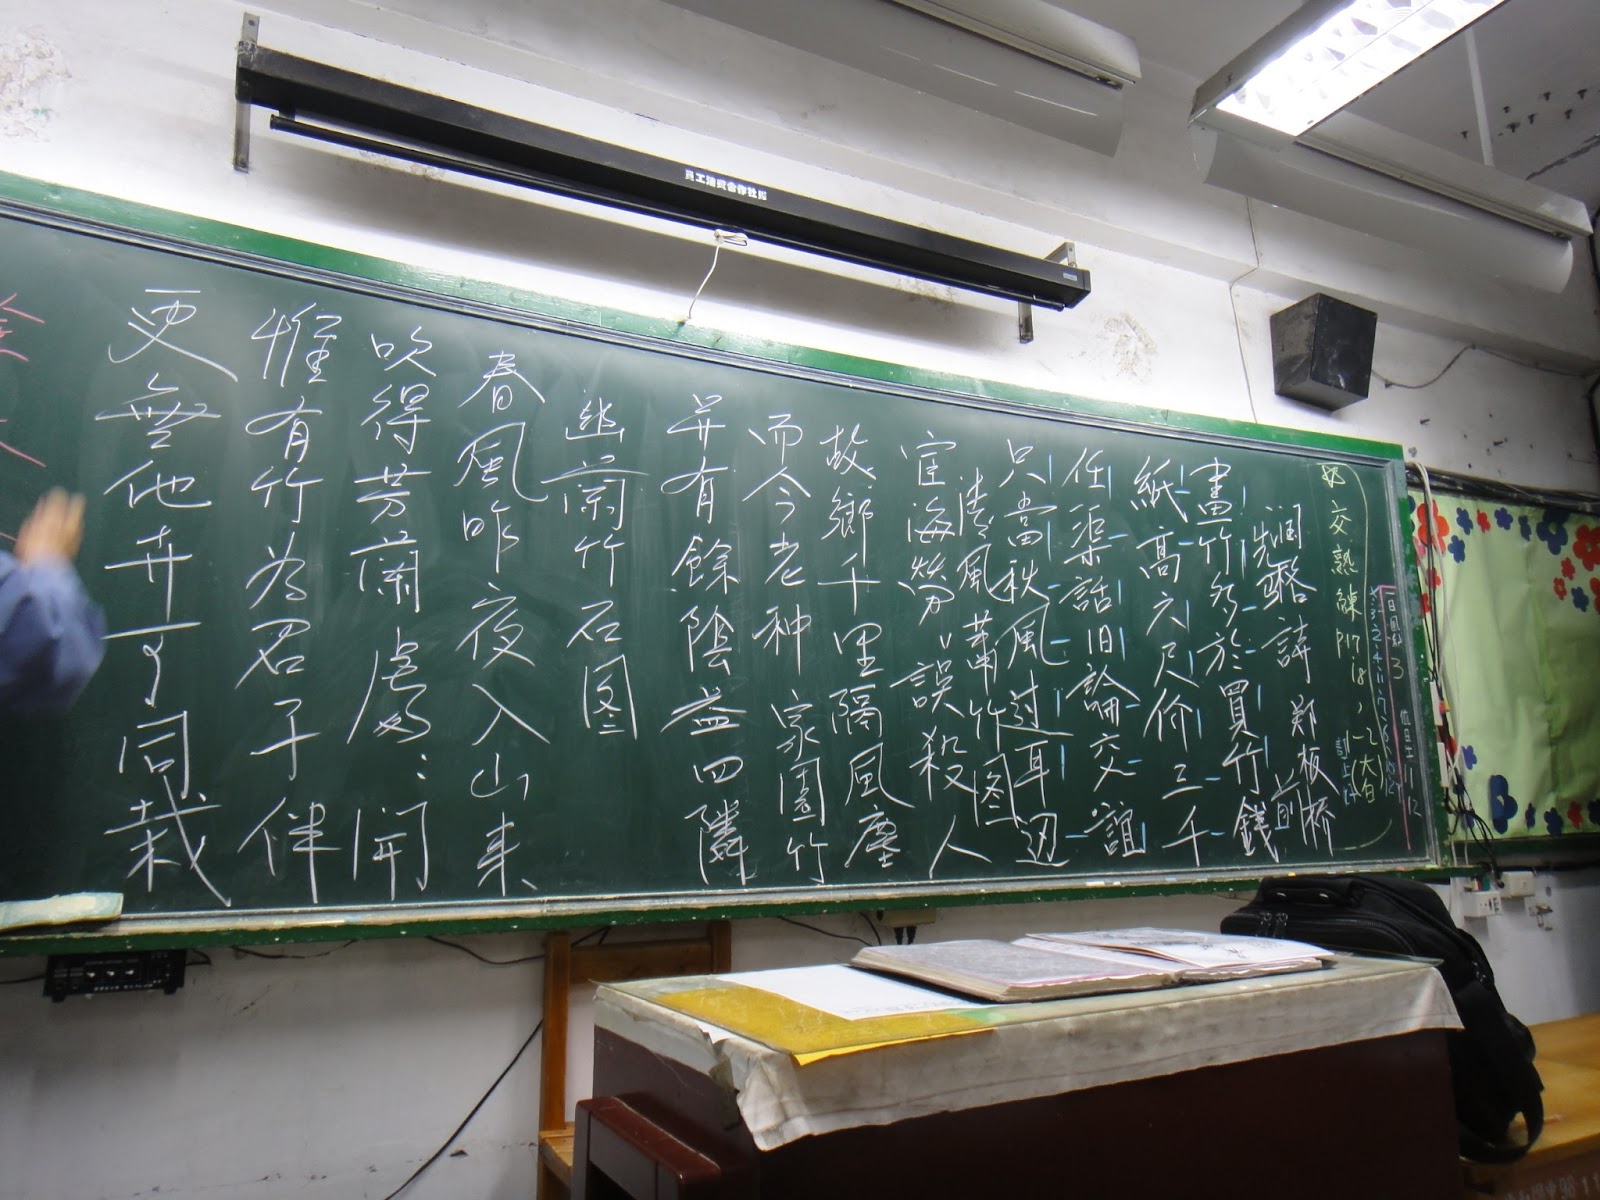 員工消費合作社
交熟練P17.18,1-2(大白)
潤格詩 郑板桥
畫竹多於買竹錢
紙高六尺价三千
任渠話旧論交誼
只當秋風过耳边
清風萧竹图
宦海勞〃誤殺人
故鄉千里隔風塵
而今老种家園竹
并有餘陰益四隣
幽蘭竹石图
春風昨夜入山来
吹得芳蘭處:開
惟有竹為君子伴
更無他卉可同栽